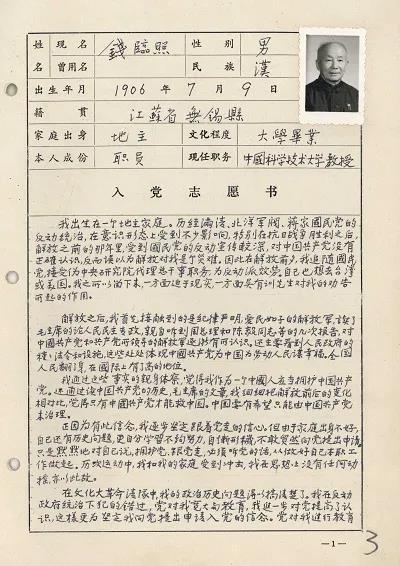 姓名 现名 錢臨照 性别 男
曾用名 民族 漢
出生年月 1906年7月9日
籍贯 江蘇省無锡縣
家庭出身 地主 文化程度 大學畢業
本人成份 职员 现任职务 中國科学技术大学教授
入党志愿书
我出生在一个地主家庭。历经满清、北洋軍閥、蒋家國民党的
反动统治,在意识形态上受到不少影响,特别在抗日战争胜利之后,
解放之前的那年里,受到國民党的反动宣传較深,对中国共产党没有
正确认识,反而误以为解放对我是个灾难。因此在解放前夕,我追随國民
党,接受伪中央研究院代理总干事职务,为反动派效劳。自己也想去台湾
或美国。我之所以留下来,一方面迫于现实,一方面吴有训先生对我的劝告
起的作用。
解放之后,我首先接触到的是纪律严明、爱民如子的解放军,读了
毛席的论人民民主专政,就自听到周总理和陈毅同志等的几次报告,对
中国共产党和共产党所领导的解放事业渐有所认识。还主要看到人民政府的
法令和设施,这些处处体现中國共产党为中國为劳动人民谋幸福。全国
人民翻了身,在國际上有了高的地位。
我通过这些事实的亲身体察,觉得我作为一个中國人应当拥护中国共产
党。还通过读中国共产党的历史、毛主席的文章,我细细把解放前后的变化
相对比,觉得只有中國共产党才能救中国。中国要有希望只能由中国共产党
来治理。
正因为有此信念,我逐步坚定跟着党走的信心。但由于家庭出身不好,
自己还有历史问题,更自分学習不夠努力,自惭形秽,不敢贸然向党提出申请,
只是默默地对自己说,拥护党,跟党走,必须听党的话,从做好自己本职工
作做起。历次运动中,我和我的家庭受到冲击,我在思想上没有任何动
摇,亦以此故。
在文化大革命清队中,我的政治历史问题得以搞清楚了。我在反动
政府统治下犯的错误,党对我宽大和教育,我进一步对党提高了认
识,这样更为坚定我向党提出申请入党的信念。党对我进行教育
—1—
3